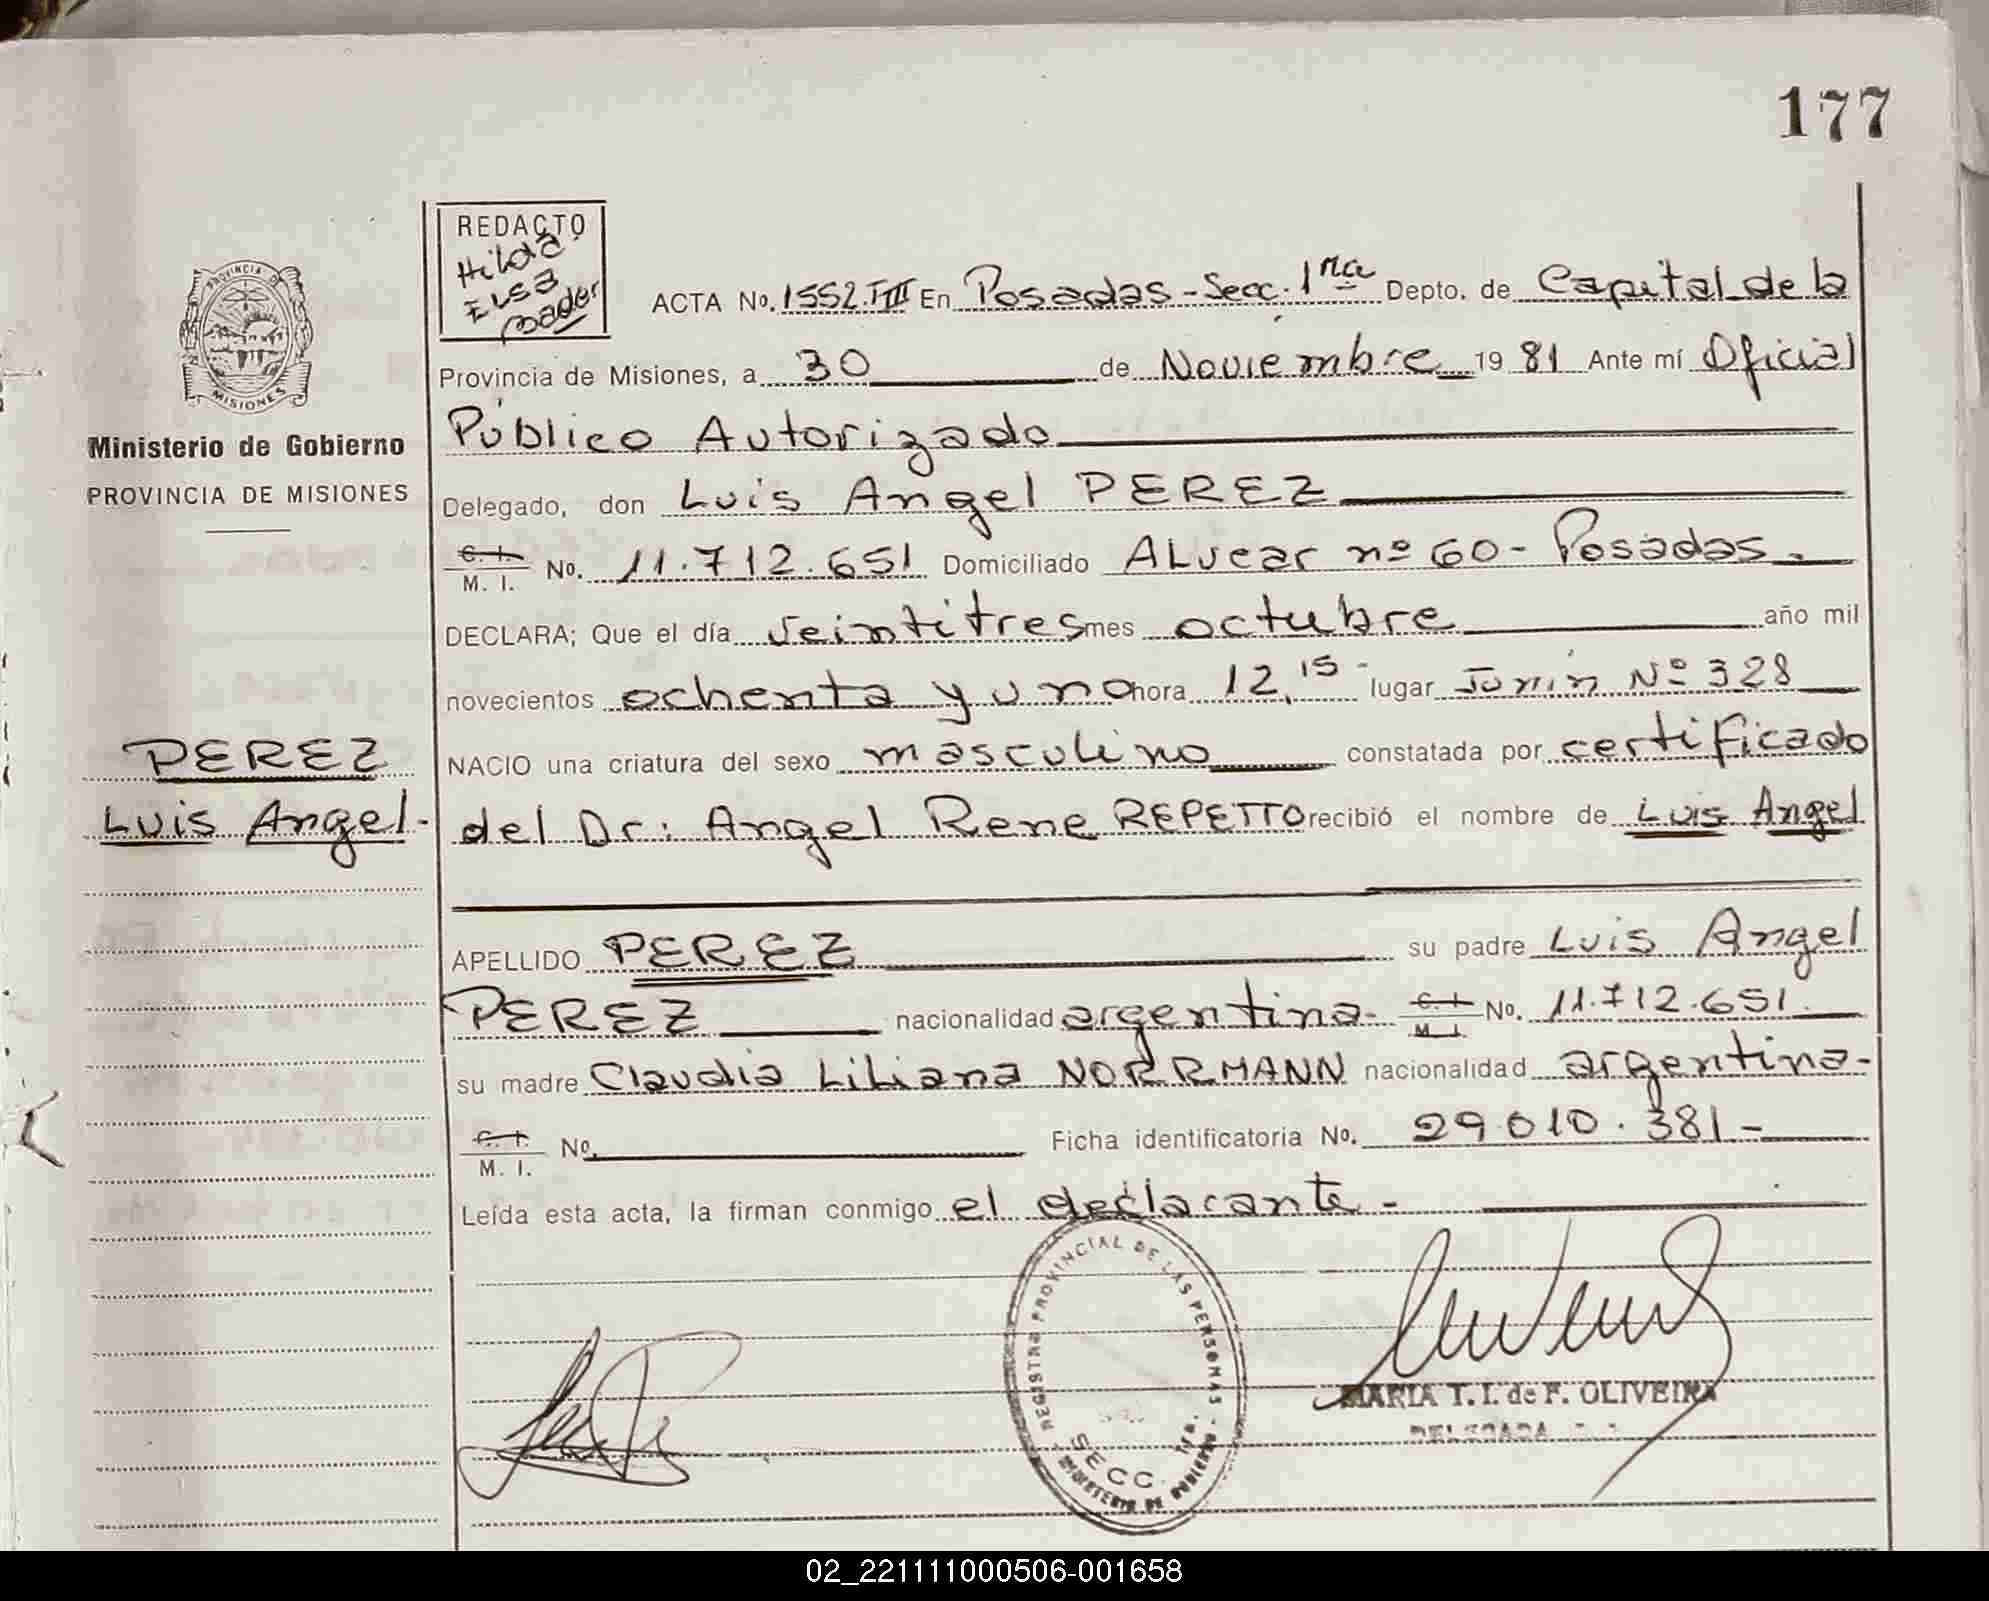 177
REDACTO
Hilda
Elsa
Bader
PROVINCIA DE
MISIONES
ACTA No. 1552.TIII En Posadas-Secc. 1ra Depto. de Capital de la
Provincia de Misiones, a 30 de Noviembre 19 81 Ante mí Oficial
Público Autorizado
Ministerio de Gobierno
PROVINCIA DE MISIONES
Delegado, don Luis Angel PEREZ
C. I.
M. I. No. 11.712.651 Domiciliado ALvear nº 60 - Posadas.
DECLARA; Que el día veintitres mes octubre año mil
novecientos ochenta y uno hora 12,15 - lugar Junin Nº 328
NACIO una criatura del sexo masculino constatada por certificado
PEREZ
Luis Angel.
del Dr: Angel Rene REPETTO recibió el nombre de Luis Angel
APELLIDO PEREZ su padre Luis Angel
PEREZ nacionalidad argentina- C. I.
M. I. No. 11.712.651.
su madre Claudia Liliana NORRMANN nacionalidad argentina-
C. I.
M. I. No. Ficha identificatoria No. 29.010.381-
Leída esta acta, la firman conmigo el declarante -
REGISTRO PROVINCIAL DE LAS PERSONAS
SECC. 1ra.
MINISTERIO DE GOBIERNO
MARIA T. I. de F. OLIVEIRA
DELEGADA
02_221111000506-001658